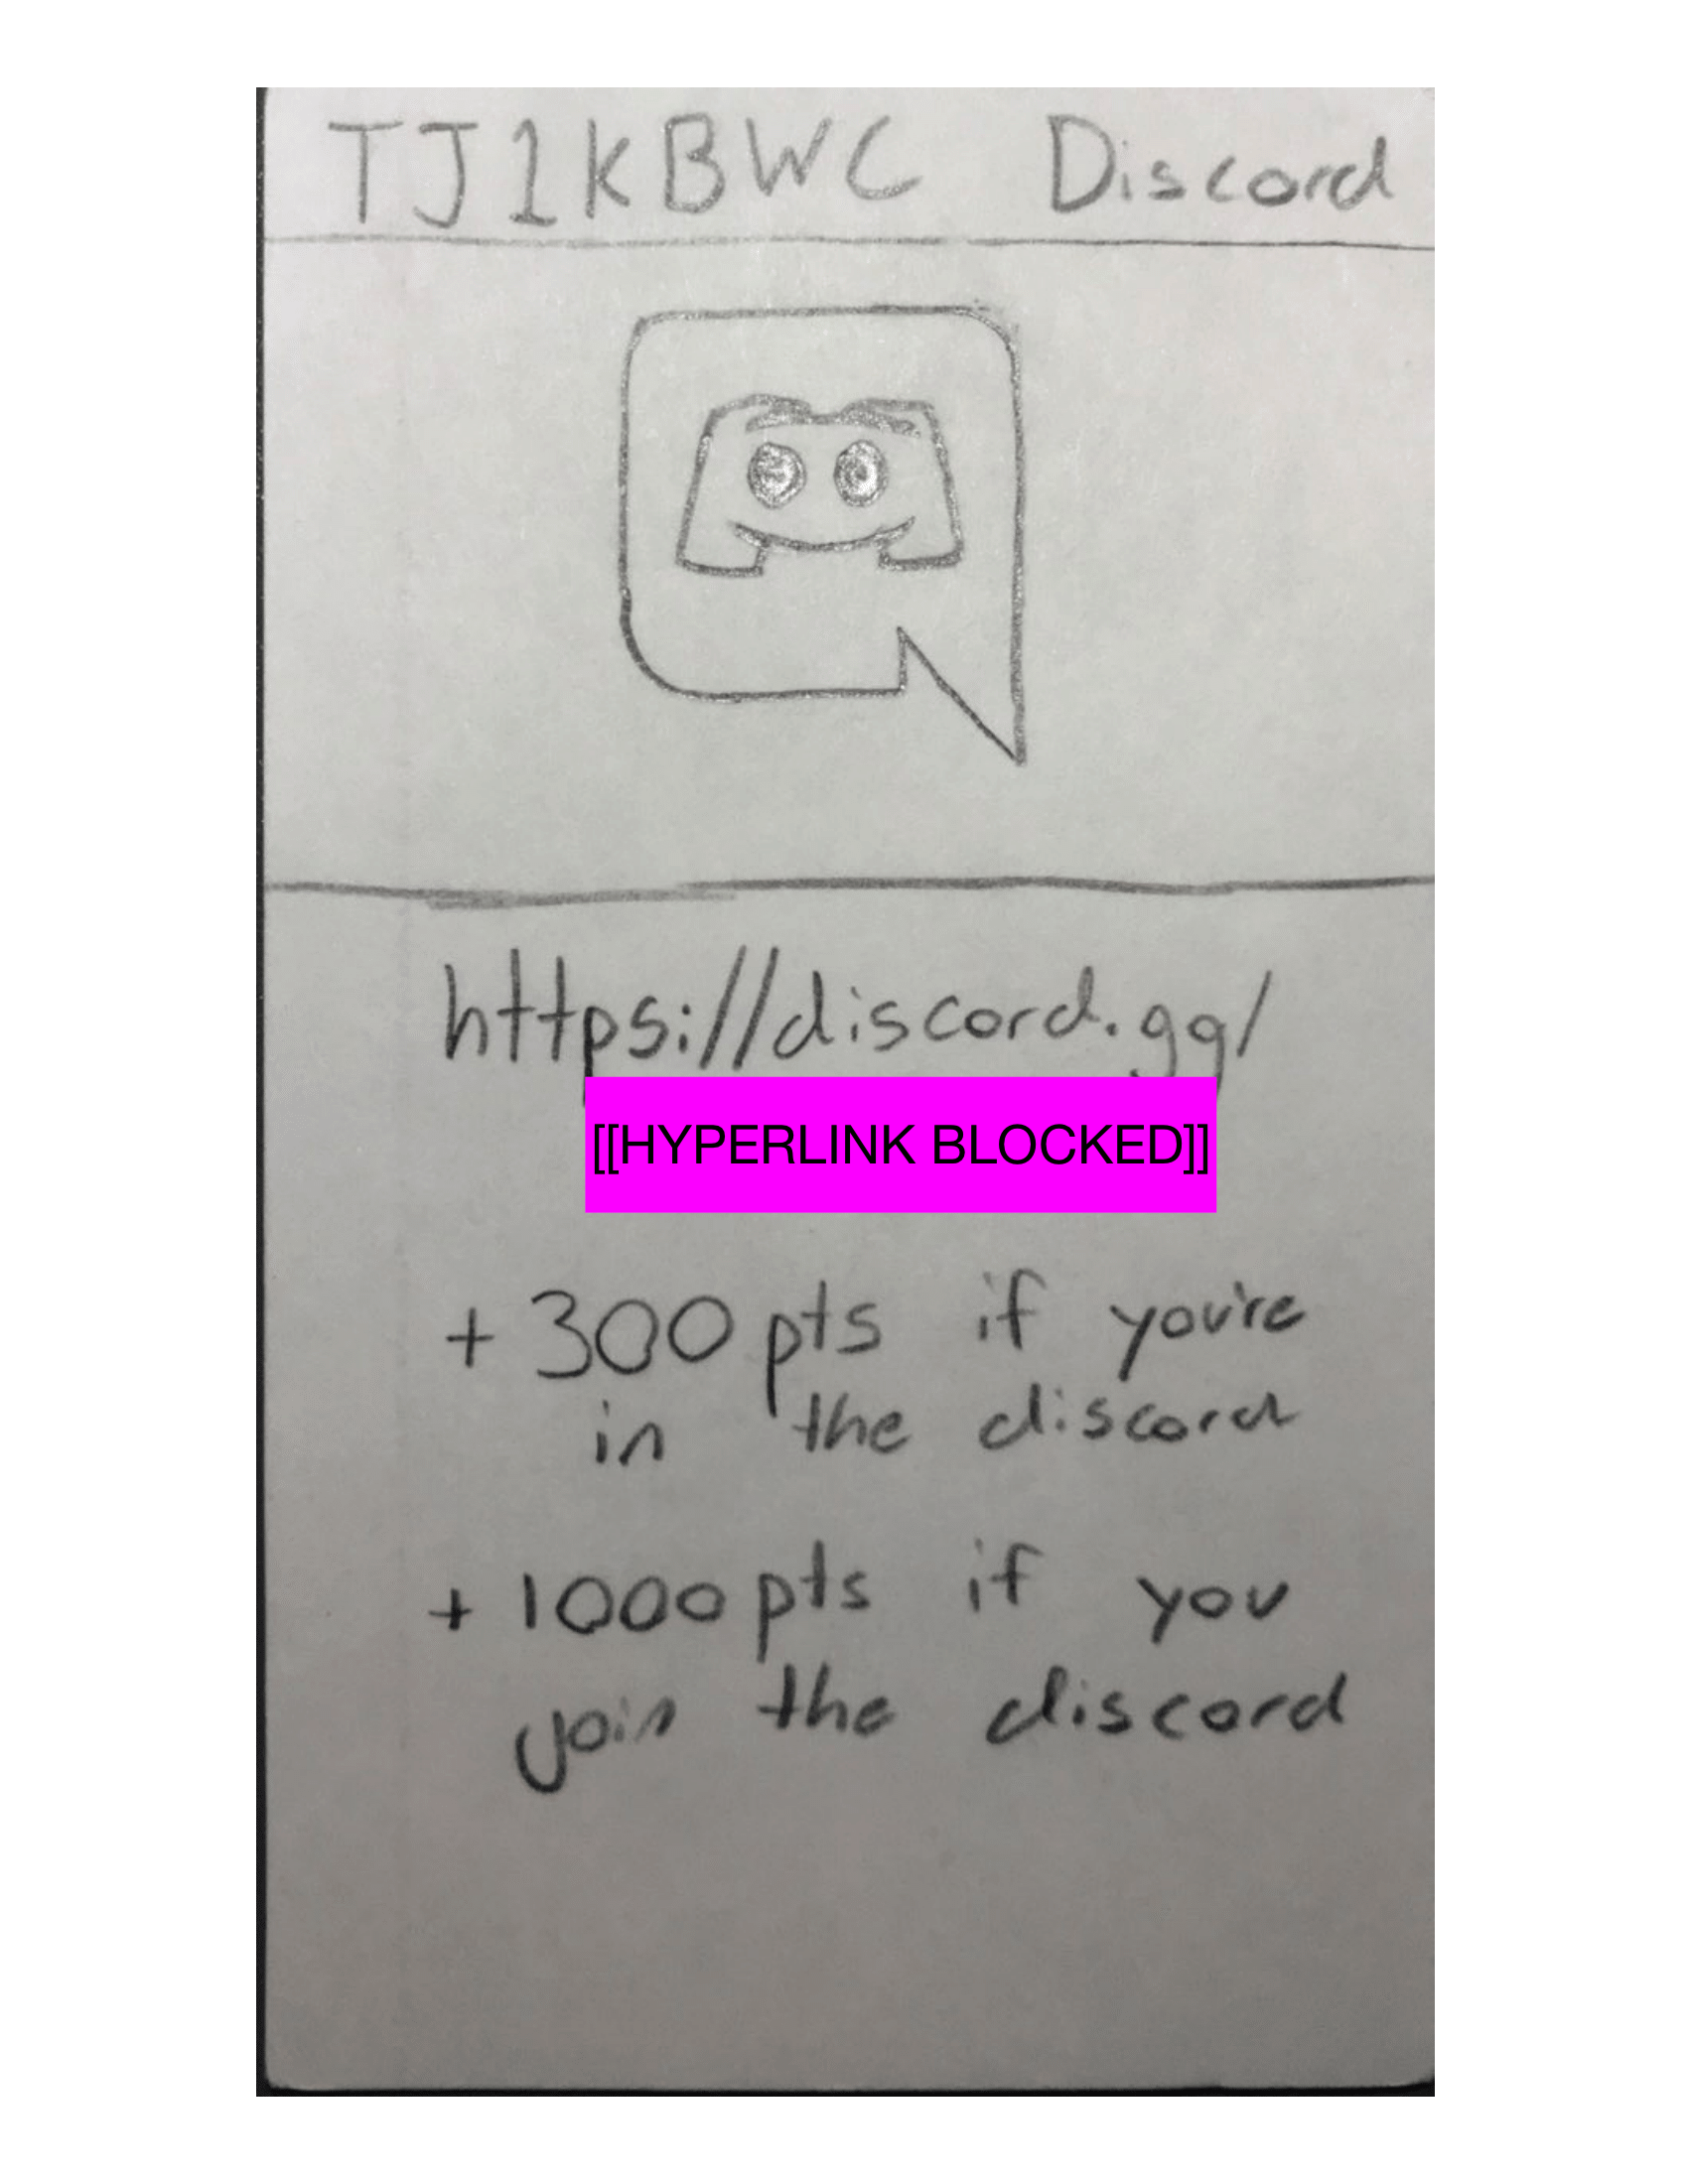 TJ1KBWC Discord
https://discord.gg/
[[HYPERLINK BLOCKED]]
+ 300 pts if you're
in the discord
+ 1000 pts if you
join the discord